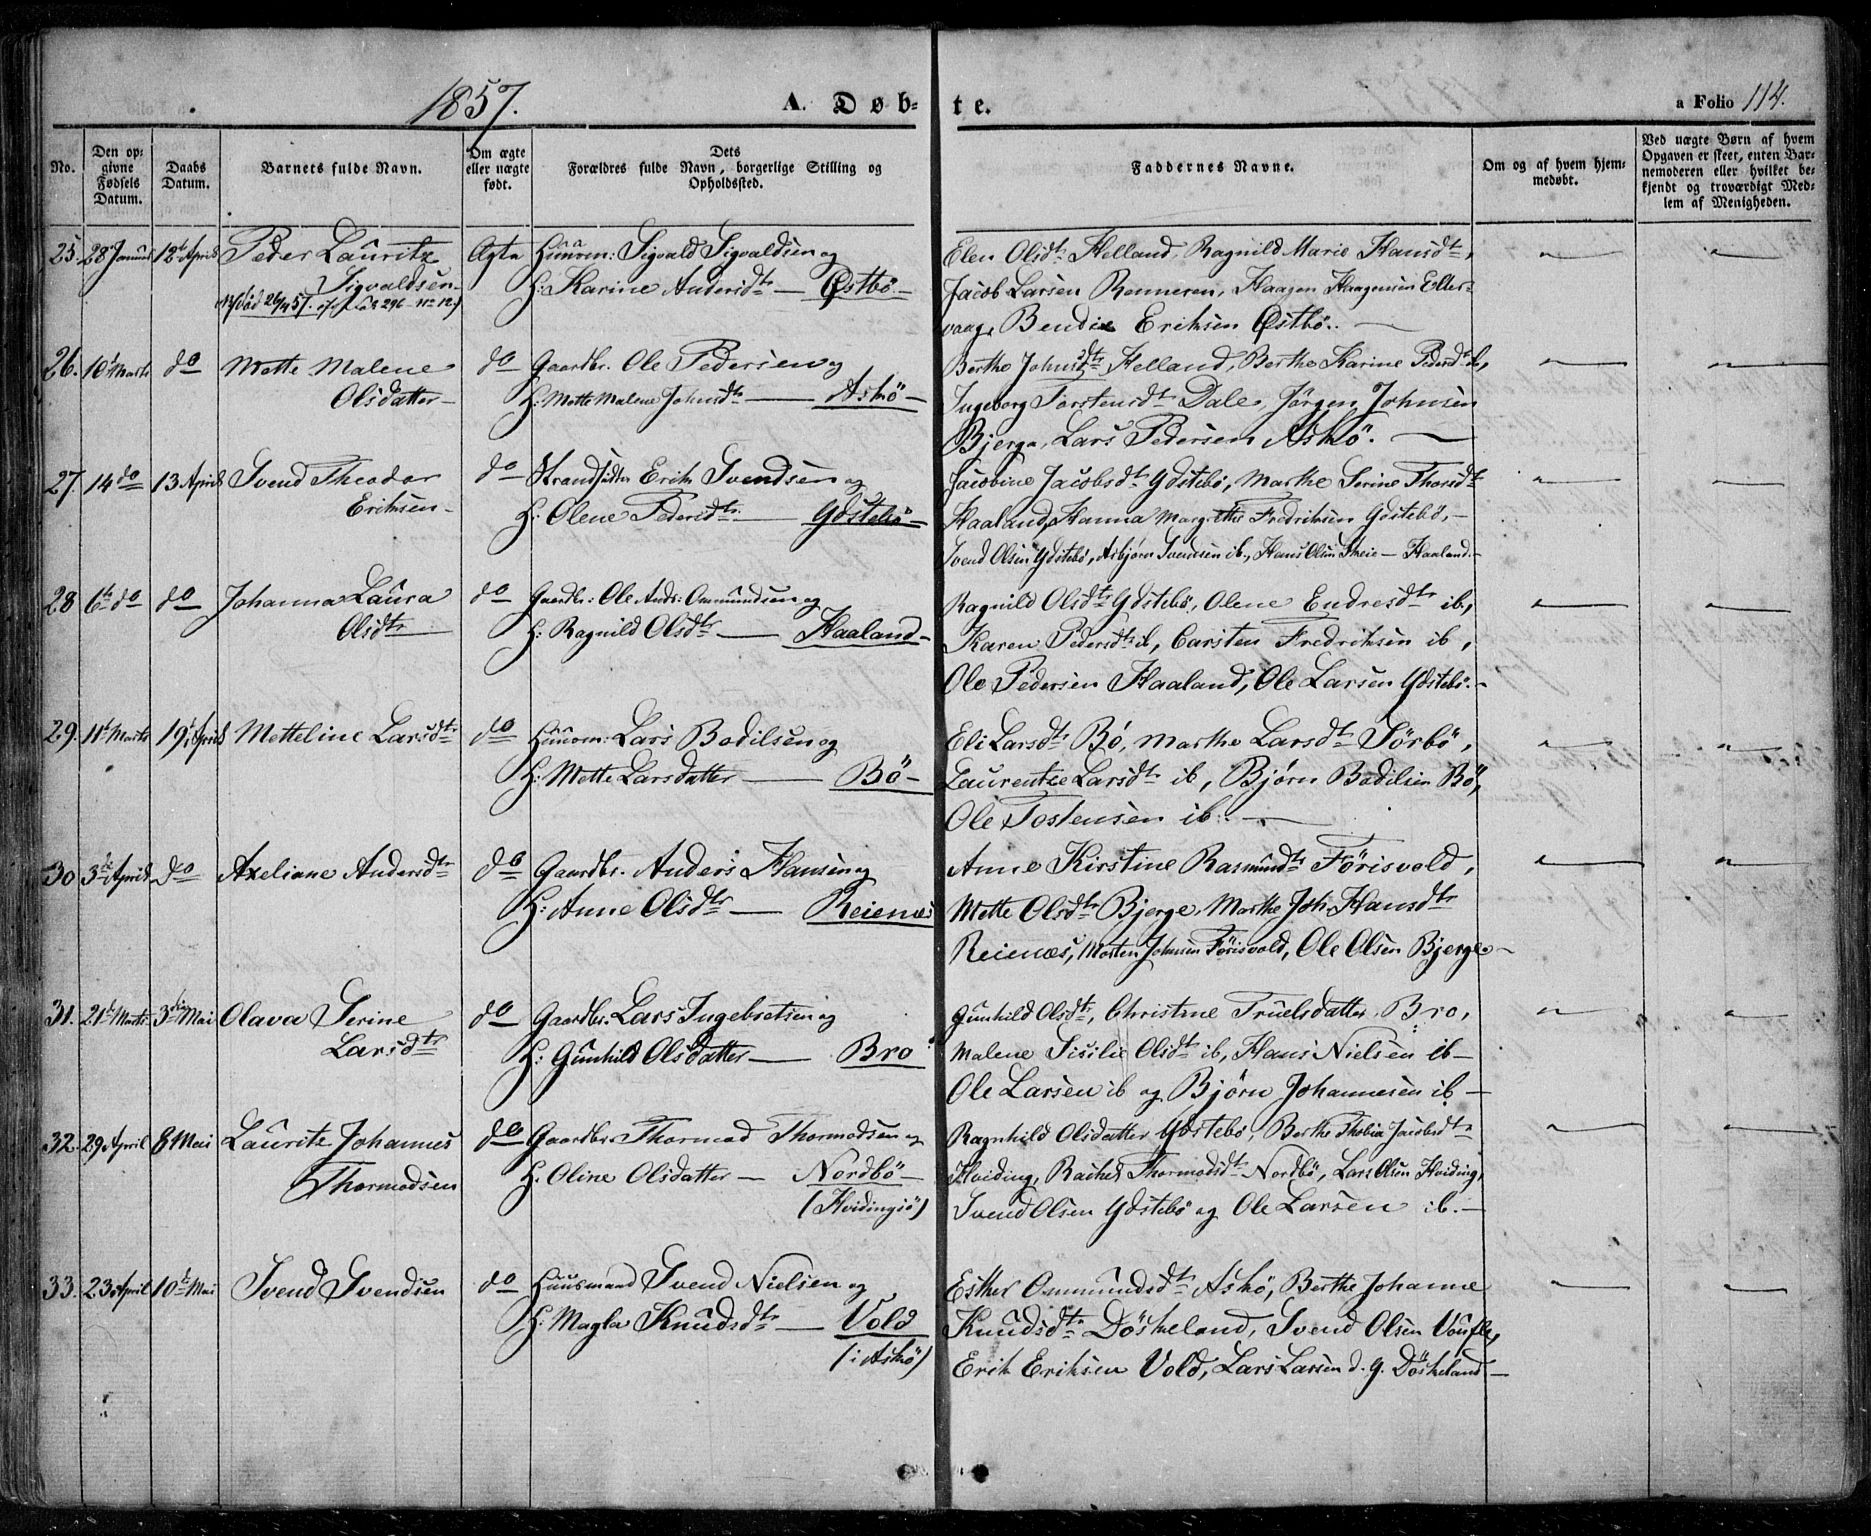 1857.
A. Døb-
te.
a Folio 114.
No.
Den op-
givne
Fødsels
Datum.
Daabs
Datum.
Barnets fulde Navn.
Om ægte
eller uægte
født.
Dets
Forældres fulde Navn, borgerlige Stilling og
Opholdssted.
Faddernes Navne.
Om og af hvem hjem-
medøbt.
Ved uægte Børn af hvem
Opgaven er skeet, enten Bar-
nemoderen eller hvilket be-
kjendt og troværdigt Med-
lem af Menigheden.
25. 28 Januar 12te April Peder Lauritz Ægte Huusm: Sigvald Sigvaldsen og
Sigvaldsen H: Karine Andersdtr — Østbö —
Elen Olsdtr Helland, Ragnild Marie Hansdtr,
Jacob Larsen Renneren, Haagen Haagensen Eller-
vaag, Bendix Eriksen Østbö. —
26. 10 Marts do Mette Malene do Gaardbr. Ole Pedersen og
Olsdatter — H: Mette Malene Johnsdtr — Askö —
Berthe Johnsdtr Helland, Berthe Karine Pedersdtr ib,
Ingeborg Torstensdtr Dale, Jörgen Johnsen
Bjerga, Lars Pedersen Askö. —
27. 14 do 13 April Svend Theodor do Strandsidder Erik Svendsen og
Eriksen — H: Olene Pedersdtr — Ydstebö —
Jacobine Jacobsdtr Ydstebö, Marthe Serine Thorsdtr
Haaland, Hanna Margrethe Fredriksen Ydstebö, —
Svend Olsen Ydstebö, Asbjørn Svendsen ib., Hans Olsen Skeie — Haaland. —
28 6te do do Johanna Laura do Gaardbr: Ole Ands: Ommundsen og
Olsdtr H: Ragnild Olsdtr — Haaland —
Ragnild Olsdtr Ydstebö, Olene Endresdtr ib,
Karen Pedersdtr ib, Carsten Fredriksen ib,
Ole Pedersen Haaland, Ole Larsen Ydstebö. —
29. 11te Marts 19 April Metteline Larsdtr do Huusm: Lars Bodilsen og
H: Mette Larsdatter — Bö —
Eli Larsdtr Bø, Marthe Larsdtr Sörbö,
Laurentze Larsdtr ib, Bjørn Bodilsen Bö,
Ole Tostensen ib. —
30 3die April do Axeliane Andersdtr do Gaardbr. Anders Hansen og
H: Anne Olsdtr — Reienæs
Anne Kirstine Rasmundtr Förisvold,
Mette Olsdtr Bjerge, Marthe Joh. Hansdtr
Reienæs, Morten Johnsen Förisvold, Ole Olsen Bjerge —
31. 21de Marts 3die Mai Olava Serine do Gaardbr. Lars Ingebretsen og
Larsdtr H: Gunhild Olsdatter — Bro
Gunhild Olsdtr, Christine Truelsdatter Bro,
Malene Sisilie Olsdtr ib, Hans Nielsen ib —
Ole Larsen ib og Bjørn Johannesen ib —
32. 29 April 8 Mai Lauritz Johannes do Gaardbr. Thormod Thormodsen og
Thormodsen H. Oline Olsdatter — Nordbö —
(Hvidingsö)
Ragnhild Olsdatter Ydstebö, Berthe Thobia Jacobsdtr
Hviding, Rachel Thormodsdtr Nordbö, Lars Olsen Hviding,
Svend Olsen Ydstebö og Ole Larsen ib. —
33. 23 April 10de Mai Svend Svendsen do Huusmand Svend Nielsen og
H: Magla Knudsdtr — Vold
(i Askö)
Esther Ommundsdtr Askö, Berthe Johanne
Knudsdtr Döskeland, Svend Olsen Voufle,
Erik Eriksen Vold, Lars Larsen d. g. Döskeland —